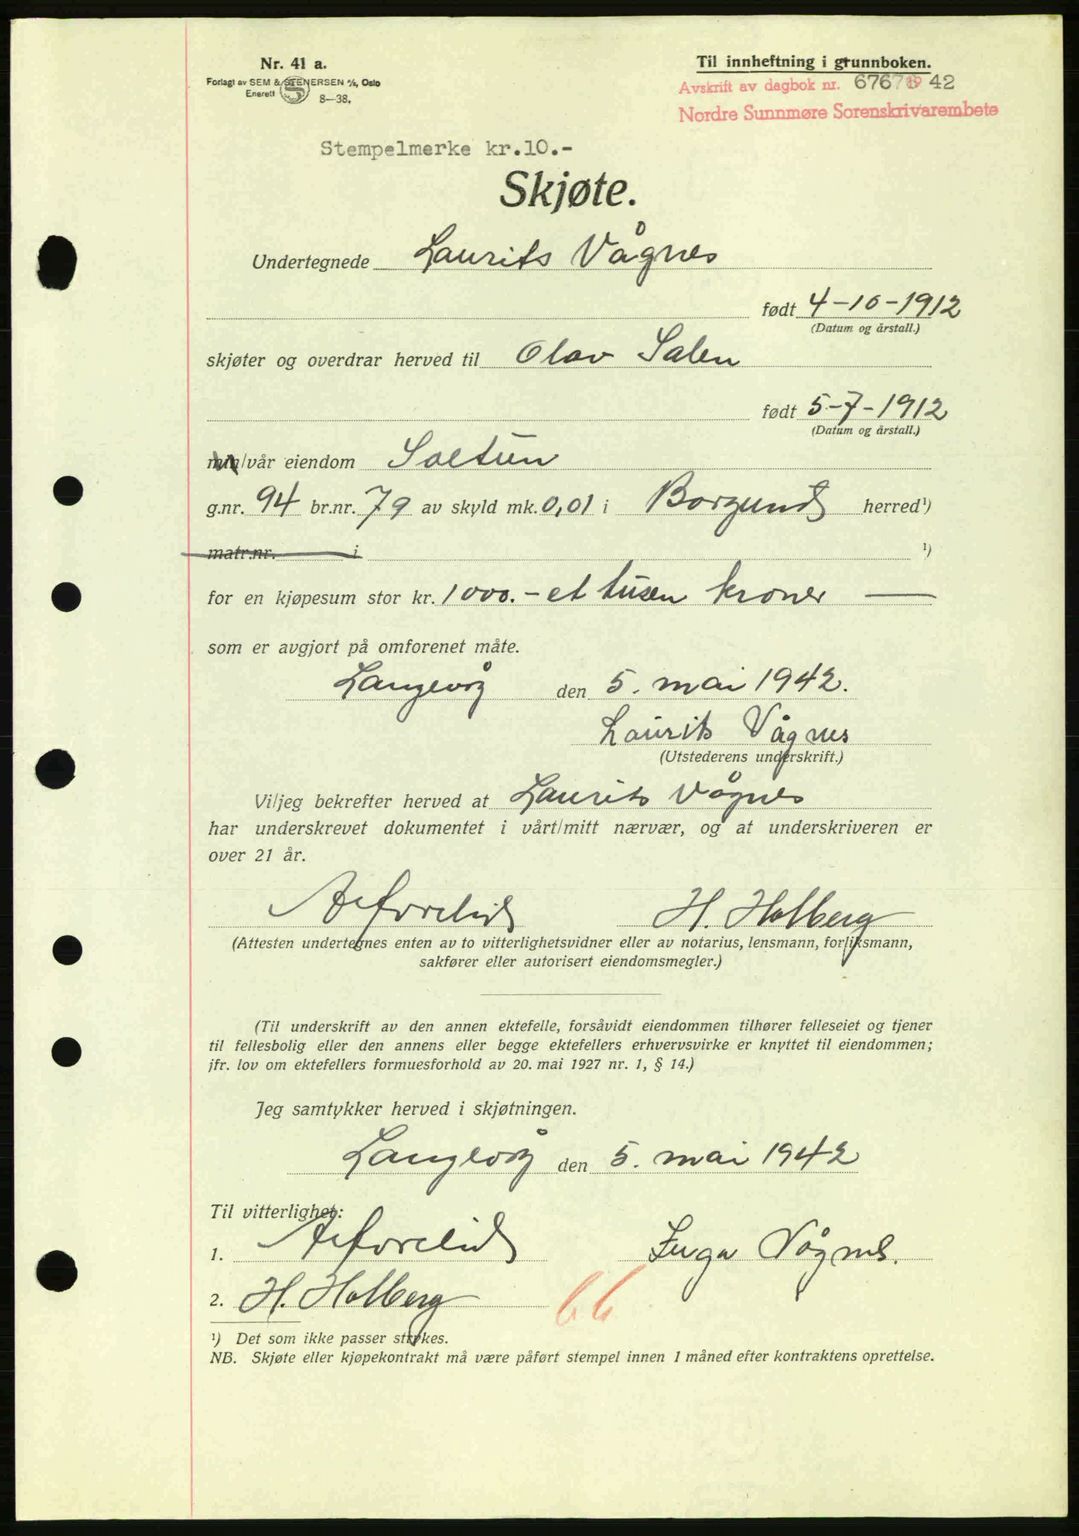 Nr. 41 a.
Forlagt av SEM & STENERSEN A/S, Oslo
Enerett 8—38.
Til innheftning i grunnboken.
Avskrift av dagbok nr. 676 19 42
Nordre Sunnmøre Sorenskrivarembete
Stempelmerke kr.10.-
Skjøte.
Undertegnede Laurits Vågnes
født 4-10-1912
(Datum og årstall.)
skjøter og overdrar herved til Olav Salen
født 5-7-1912
(Datum og årstall.)
min/vår eiendom Soltun
g.nr. 94 br.nr. 79 av skyld mk. 0,01 i Borgund herred ¹)
matr.nr. i ¹)
for en kjøpesum stor kr. 1000.- et tusen kroner
som er avgjort på omforenet måte.
Langevåg den 5. mai 1942.
Laurits Vågnes
(Utstederens underskrift.)
Vi/jeg bekrefter herved at Laurits Vågnes
har underskrevet dokumentet i vårt/mitt nærvær, og at underskriveren er
over 21 år.
H. Holberg
(Attesten undertegnes enten av to vitterlighetsvidner eller av notarius, lensmann, forliksmann,
sakfører eller autorisert eiendomsmegler.)
(Til underskrift av den annen ektefelle, forsåvidt eiendommen tilhører felleseiet og tjener
til fellesbolig eller den annens eller begge ektefellers erhvervsvirke er knyttet til eiendommen;
jfr. lov om ektefellers formuesforhold av 20. mai 1927 nr. 1, § 14.)
Jeg samtykker herved i skjøtningen.
Langevåg den 5. mai 1942
Til vitterlighet:
1. Inga Vågnes.
2. H. Holberg
66
¹) Det som ikke passer strykes.
NB. Skjøte eller kjøpekontrakt må være påført stempel innen 1 måned efter kontraktens oprettelse.